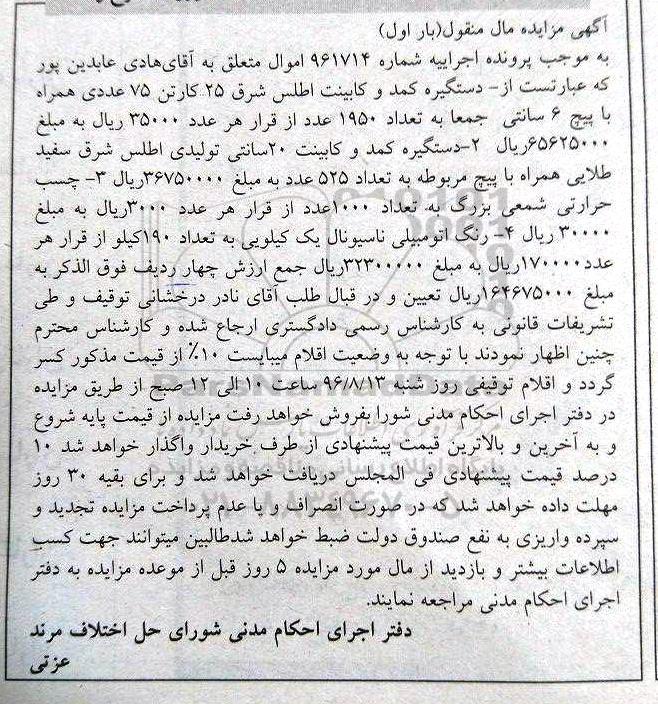 آگهی مزایده مال منقول(بار اول)
به موجب پرونده اجراییه شماره ۹۶۱۷۱۴ اموال متعلق به آقای‌هادی عابدین پور
که عبارتست از- دستگیره کمد و کابینت اطلس شرق ۲۵ کارتن ۷۵ عددی همراه
با پیچ ۶ سانتی جمعا به تعداد ۱۹۵۰ عدد از قرار هر عدد ۳۵۰۰۰ ریال به مبلغ
۶۵۶۲۵۰۰۰ریال ۲-دستگیره کمد و کابینت ۲۰سانتی تولیدی اطلس شرق سفید
طلایی همراه با پیچ مربوطه به تعداد ۵۲۵ عدد به مبلغ ۳۶۷۵۰۰۰۰ریال ۳- چسب
حرارتی شمعی بزرگ به تعداد ۱۰۰۰عدد از قرار هر عدد ۳۰۰۰ریال به مبلغ
۳۰۰۰۰ ریال ۴- رنگ اتومبیلی ناسیونال یک کیلویی به تعداد ۱۹۰کیلو از قرار هر
عدد۱۷۰۰۰۰ریال به مبلغ ۳۲۳۰۰۰۰۰ریال جمع ارزش چهار ردیف فوق الذکر به
مبلغ ۱۶۴۶۷۵۰۰۰ریال تعیین و در قبال طلب آقای نادر درخشانی توقیف و طی
تشریفات قانونی به کارشناس رسمی دادگستری ارجاع شده و کارشناس محترم
چنین اظهار نمودند با توجه به وضعیت اقلام میبایست ۱۰٪ از قیمت مذکور کسر
گردد و اقلام توقیفی روز شنبه ۹۶/۸/۱۳ ساعت ۱۰ الی ۱۲ صبح از طریق مزایده
در دفتر اجرای احکام مدنی شورا بفروش خواهد رفت مزایده از قیمت پایه شروع
و به آخرین و بالاترین قیمت پیشنهادی از طرف خریدار واگذار خواهد شد ۱۰
درصد قیمت پیشنهادی فی المجلس دریافت خواهد شد و برای بقیه ۳۰ روز
مهلت داده خواهد شد که در صورت انصراف و یا عدم پرداخت مزایده تجدید و
سپرده واریزی به نفع صندوق دولت ضبط خواهد شدطالبین میتوانند جهت کسب
اطلاعات بیشتر و بازدید از مال مورد مزایده ۵ روز قبل از موعده مزایده به دفتر
اجرای احکام مدنی مراجعه نمایند.
دفتر اجرای احکام مدنی شورای حل اختلاف مرند
عزتی